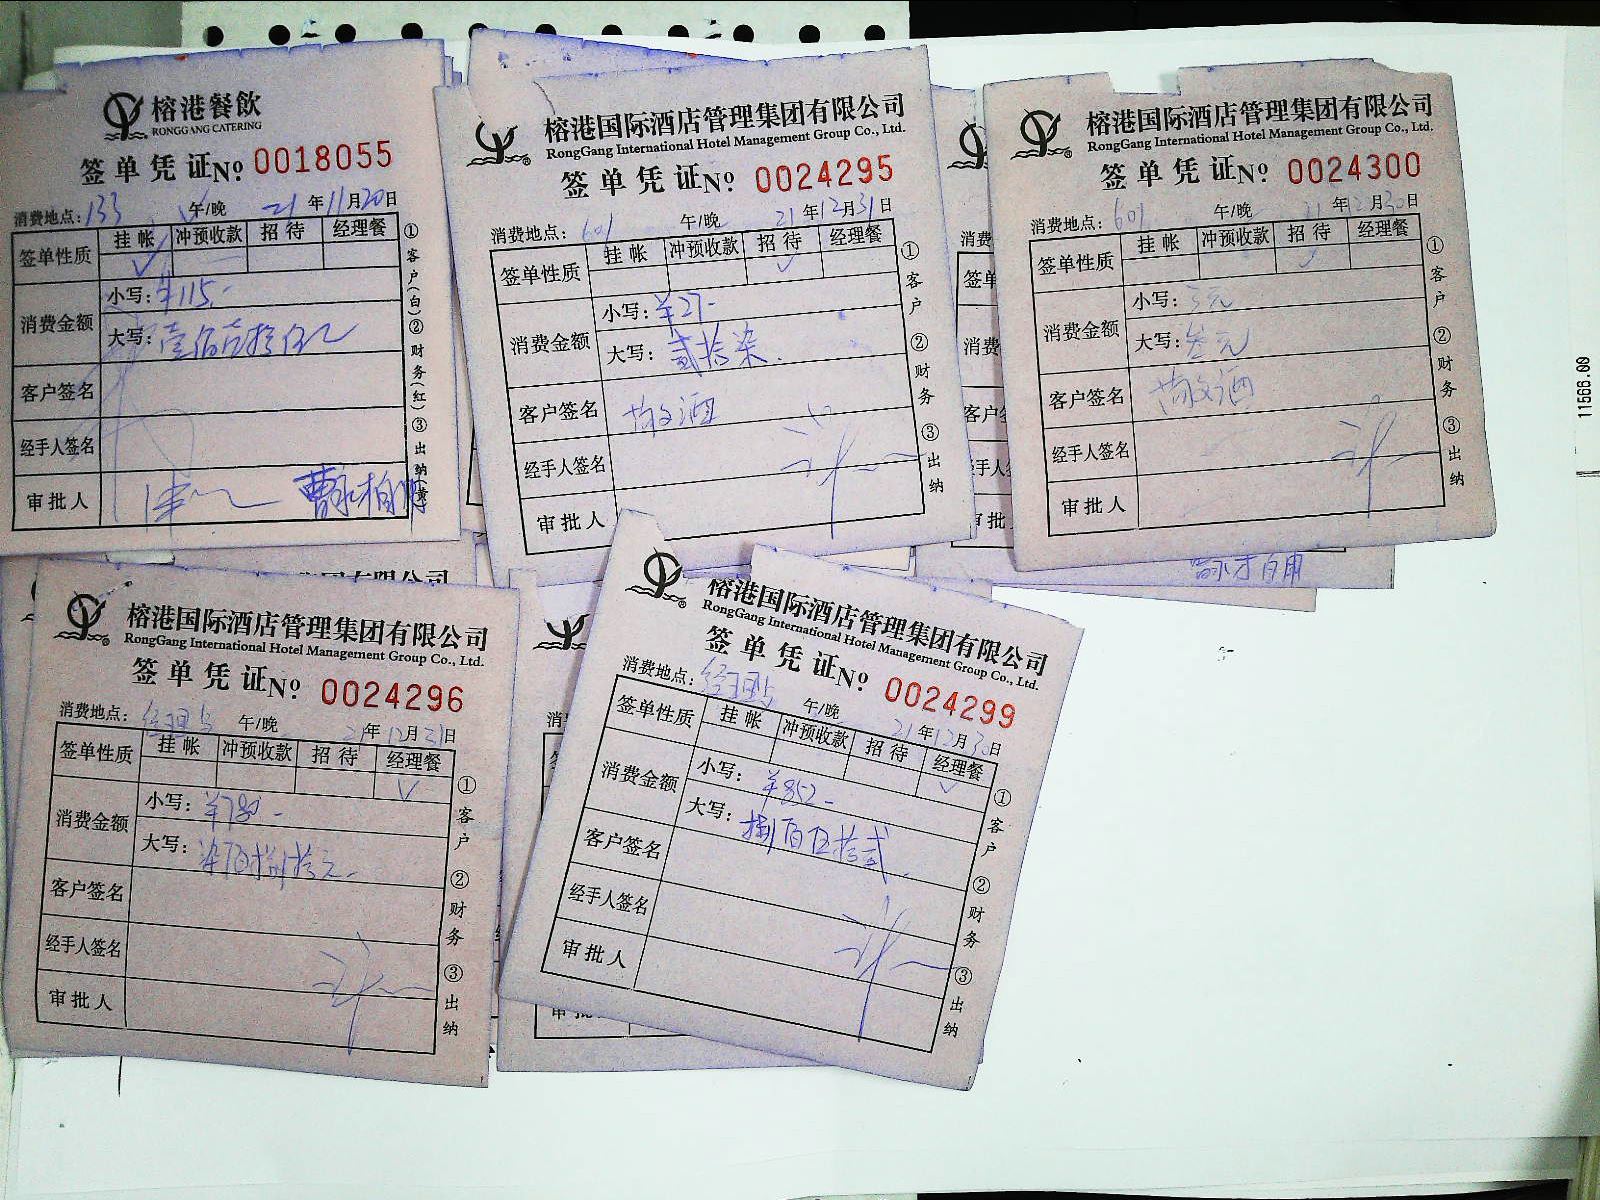 榕港餐飲
RONGGANG CATERING
签单凭证№ 0018055
消费地点：133 午/晚 21年11月20日
签单性质 挂帐 冲预收款 招待 经理餐
消费金额
小写：¥115.-
大写：壹佰壹拾伍元
客户签名
经手人签名
审批人
①客户(白)②财务(红)③出纳(黄)
榕港国际酒店管理集团有限公司
RongGang International Hotel Management Group Co., Ltd.
签单凭证№ 0024295
消费地点：601 午/晚 21年12月31日
签单性质 挂帐 冲预收款 招待 经理餐
消费金额
小写：¥27-
大写：贰拾柒
客户签名 敬酒
经手人签名
审批人
①客户 ②财务 ③出纳
榕港国际酒店管理集团有限公司
RongGang International Hotel Management Group Co., Ltd.
签单凭证№ 0024300
消费地点：601 午/晚 21年12月30日
签单性质 挂帐 冲预收款 招待 经理餐
消费金额
小写：3元
大写：叁元
客户签名 敬酒
经手人签名
审批人
①客户 ②财务 ③出纳
11566.00
榕港国际酒店管理集团有限公司
RongGang International Hotel Management Group Co., Ltd.
签单凭证№ 0024296
消费地点： 午/晚 21年12月31日
签单性质 挂帐 冲预收款 招待 经理餐
消费金额
小写：¥780-
大写：柒佰捌拾元
客户签名
经手人签名
审批人
①客户 ②财务 ③出纳
榕港国际酒店管理集团有限公司
RongGang International Hotel Management Group Co., Ltd.
签单凭证№ 0024299
消费地点： 午/晚 21年12月30日
签单性质 挂帐 冲预收款 招待 经理餐
消费金额
小写：¥852-
大写：捌百伍拾贰
客户签名
经手人签名
审批人
①客户 ②财务 ③出纳